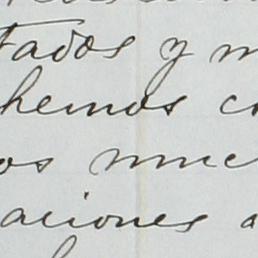 tados y m
hemos co
os muc
aciones a